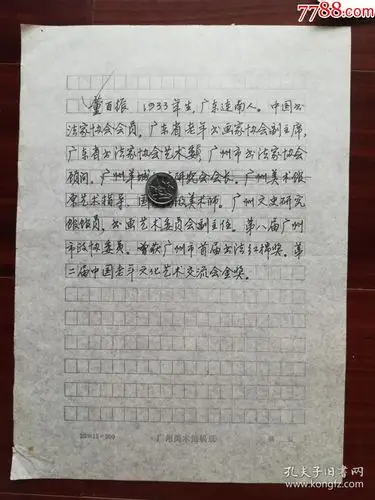 7788.com
中国收藏热线
董百振 1933年生,广东连南人。中国书
法家协会会员。广东省老年书画家协会副主席,
广东省书法家协会艺术委 广州市书法家协会
顾问。广州羊城 研究会会长。广州美术馆
艺术指导。国 级美术师。广州文史研究
馆馆员。书画艺术委员会副主任。第八届广州
市政协委员。曾获广州市首届书法红棉奖。第
二届中国老年文化艺术交流会金奖。
20×15=300
广州美术馆稿纸
孔夫子旧书网
www.kongfz.com